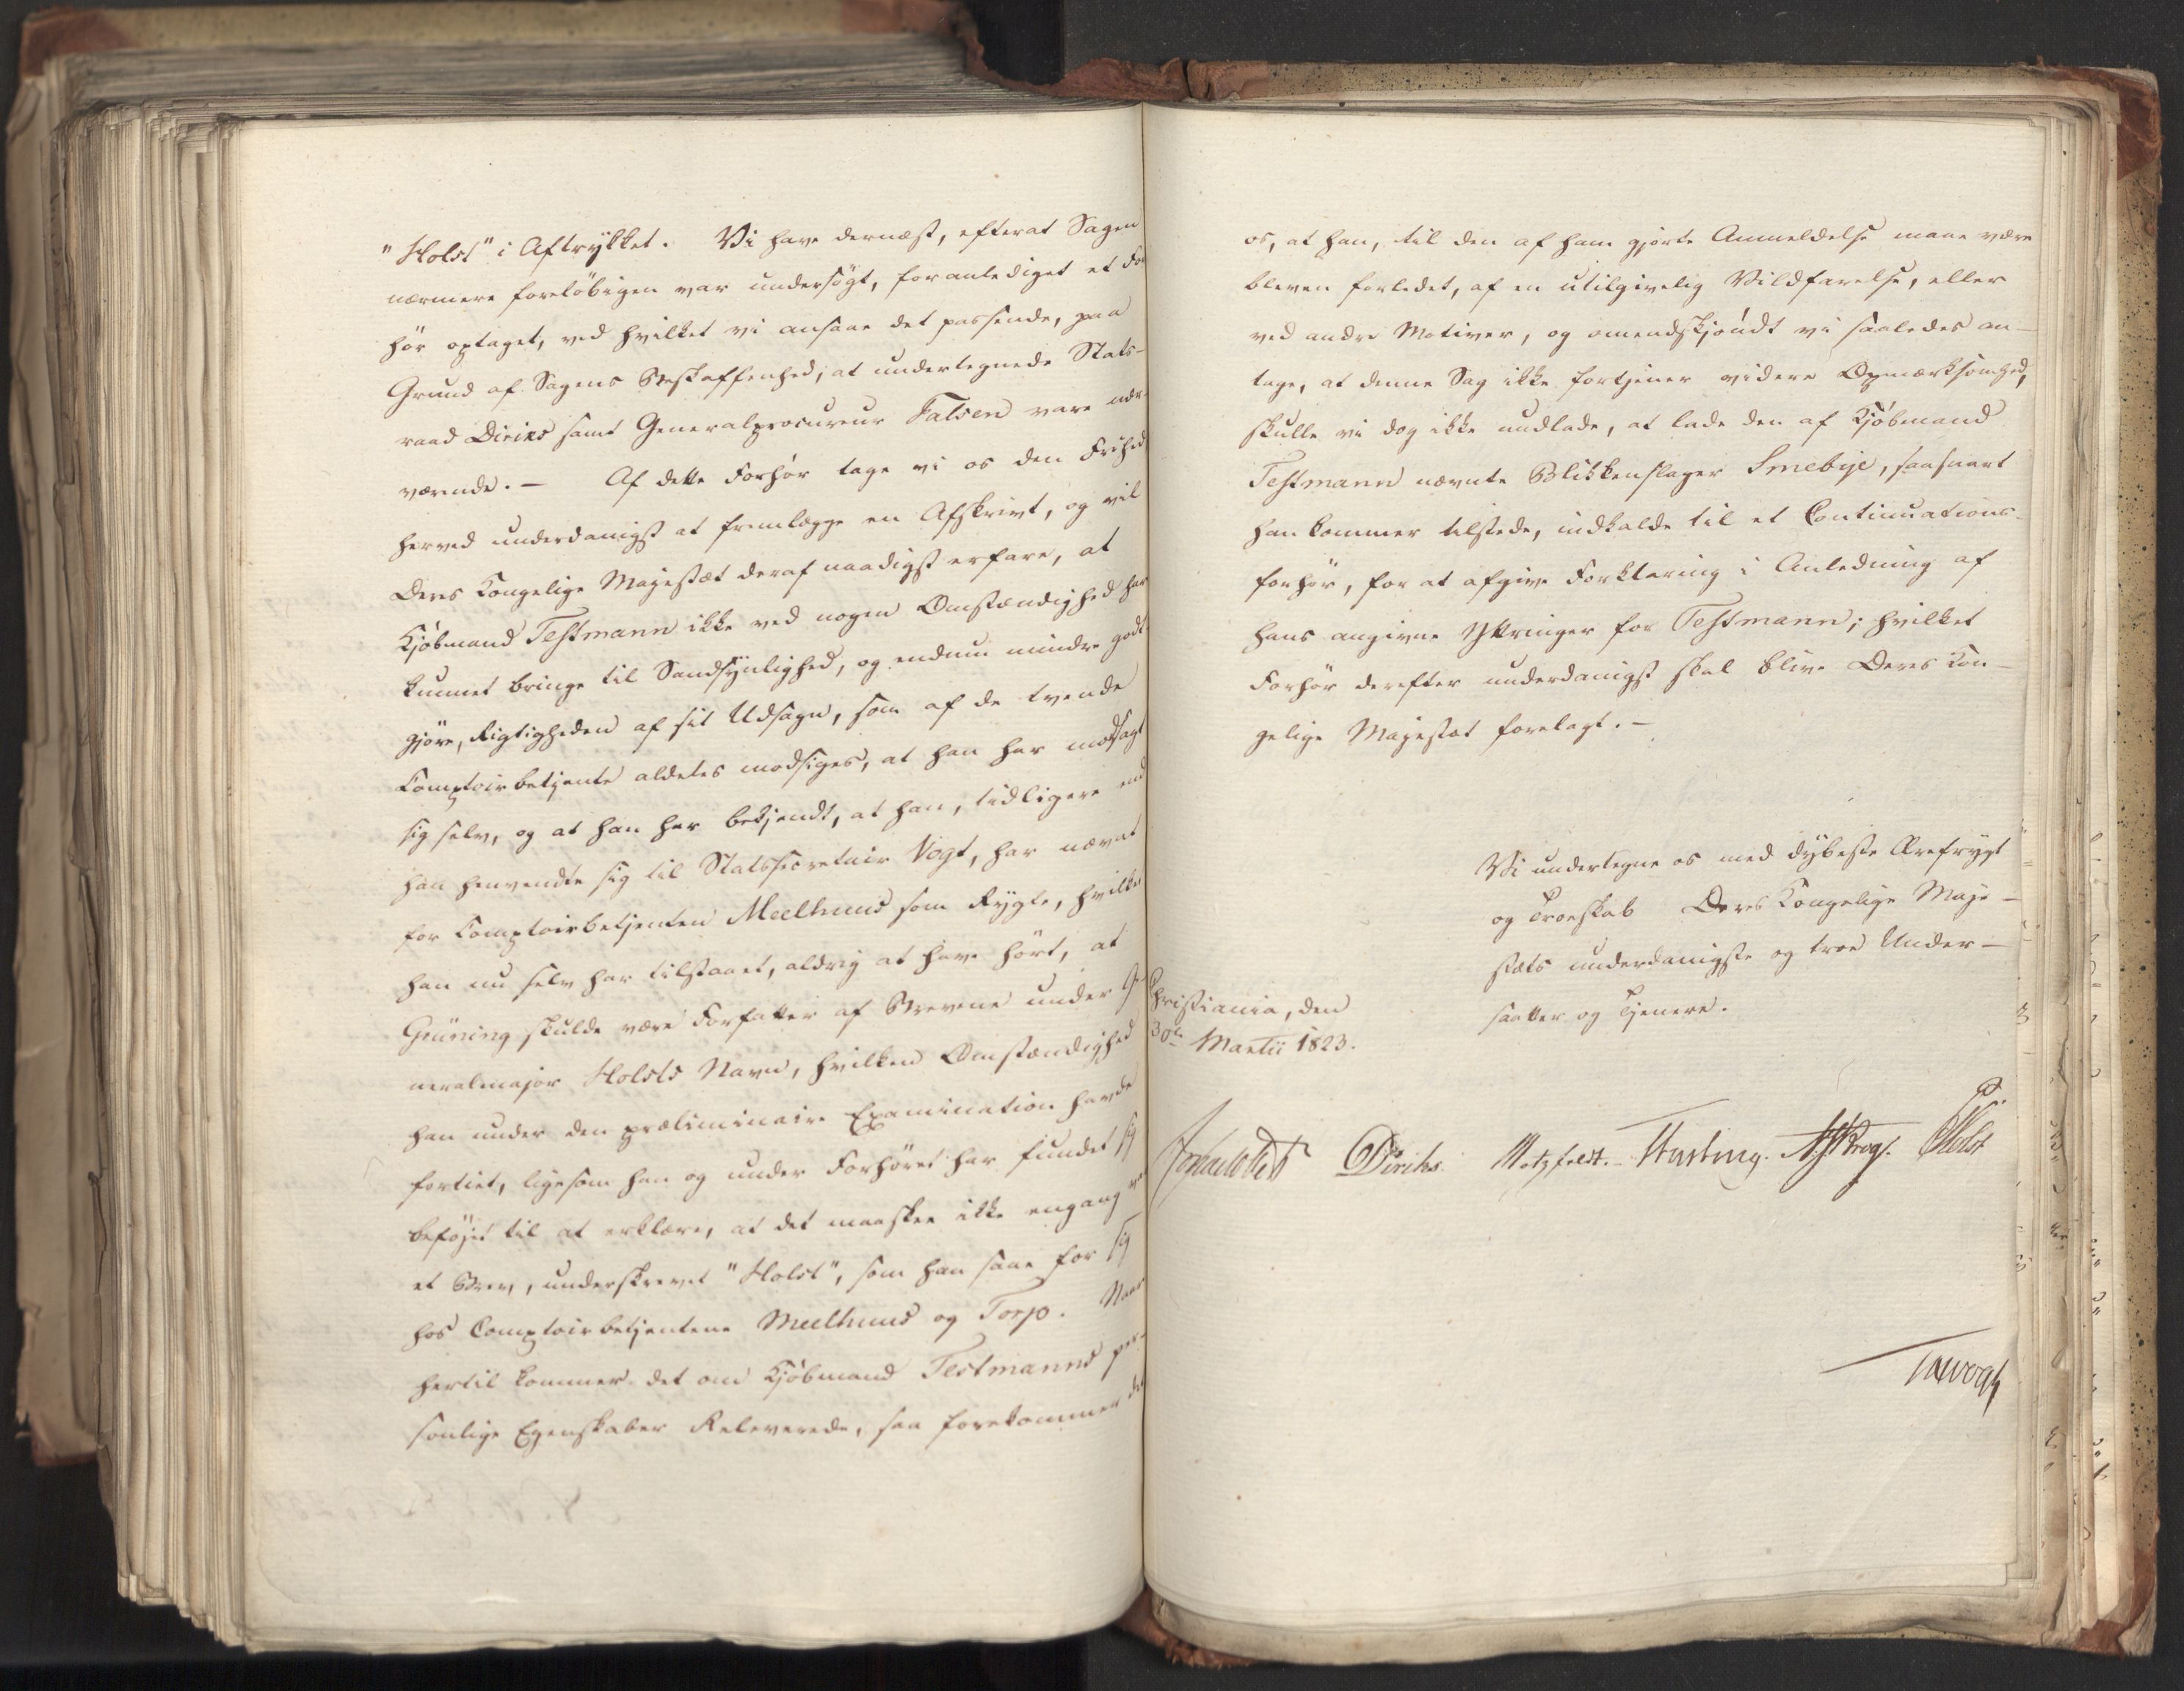 "Holst" i Aftrykket. Vi have dernæst, efterat Sagen
nærmere foreløbigen var undersögt, foranlediget et For
hör optaget, ved hvilket vi ansaae det passende, paa
Grund af Sagens Beskaffenhed, at undertegnede Stats-
raad Diriks samt Generalprocureur Falsen vare nær-
værende. — Af dette Forhör tage vi os den Frihed
herved underdanigst at fremlægge en Afskrivt, og vil
Deres Kongelige Majestæt deraf naadigst erfare, at
Kjöbmand Testmann ikke ved nogen Omstændighed har
kunnet bringe til Sandsynlighed, og endnu mindre godt
gjöre, Rigtigheden af sit Udsagn, som af de tvende
Comptoirbetjente aldeles modsiges, at han har modsagt
sig selv, og at han har bekjendt, at han, tidligere end
han henvendte sig til Statssecretair Vogt, har nævnt
for Comptoirbetjenten Meelhuus som Rygte, hvilket
han nu selv har tilstaaet, aldrig at have hört, at
Grüning skulde være Forfatter af Brevene under Ge-
neralmajor Holsts Navn, hvilken Omstændighed
han under den præliminaire Examination havde
fortiet, ligesom han og under Forhöret har fundet sig
beföjet til at erklære, at det maaskee ikke engang var
et Brev, underskrevet "Holst", som han saae for sig
hos Comptoirbetjentene Meelhuus og Torp. Naar
hertil kommer det om Kjöbmand Testmanns per-
sonlige Egenskaber Releverede, saa forekommer det
os, at han, til den af ham gjorte Anmeldelse maae være
bleven forledet, af en utilgivelig Vildfarelse, eller
ved andre Motiver, og omendskjöndt vi saaledes an-
tage, at denne Sag ikke fortjener videre Opmærksomhed,
skulle vi dog ikke undlade, at lade den af Kjöbmand
Testmann nævnte Blikkenslager Smebye, saasnart
han kommer tilstede, indkalde til et Continuations-
forhör, for at afgive Forklaring i Anledning af
hans angivne Yttringer for Testmann; hvilket
Forhör derefter underdanigst skal blive Deres Kon-
gelige Majestæt forelagt. —
Vi undertegne os med dybeste Ærefrygt
og Troeskab Deres Kongelige Maje-
stæts underdanigste og troe Under-
saatter og Tjenere.
Christiania, den
30te Martii 1823.
Diriks. Motzfeldt. Fasting. Krog. Holst